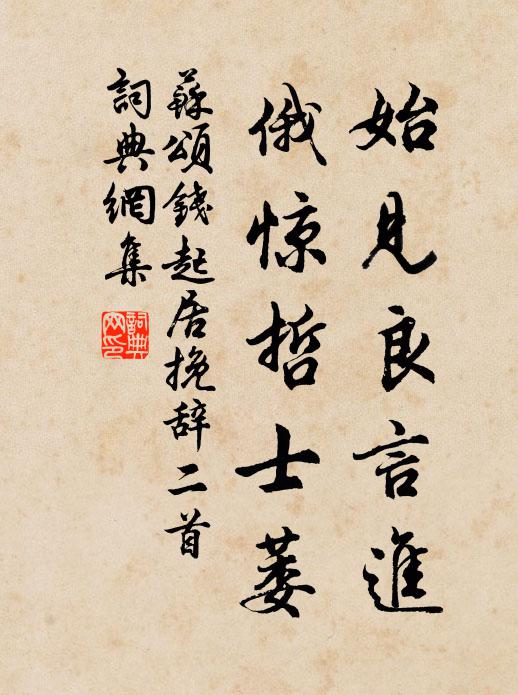 始見良言進
俄惊哲士萎
蘇頌錢起居挽辞二首
詞典網集
詞典網印